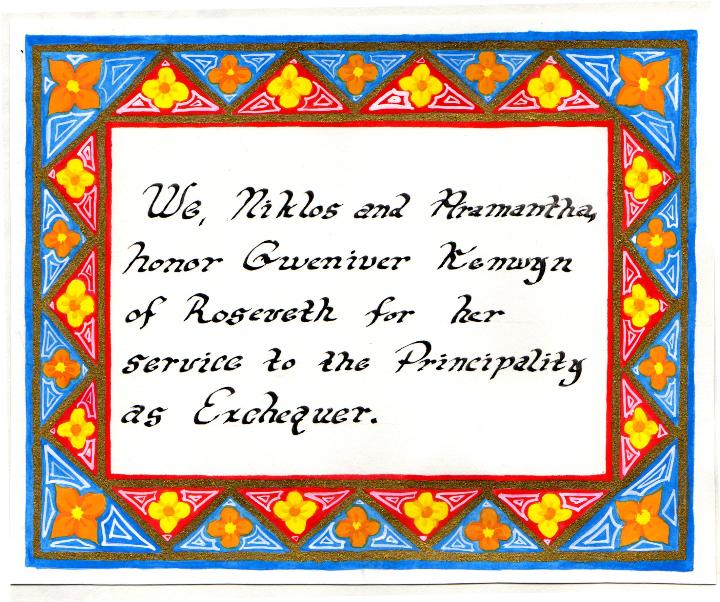 We, Niklos and Aramantha,
honor Gweniver Kenwyn
of Roseveth for her
service to the Principality
as Exchequer.